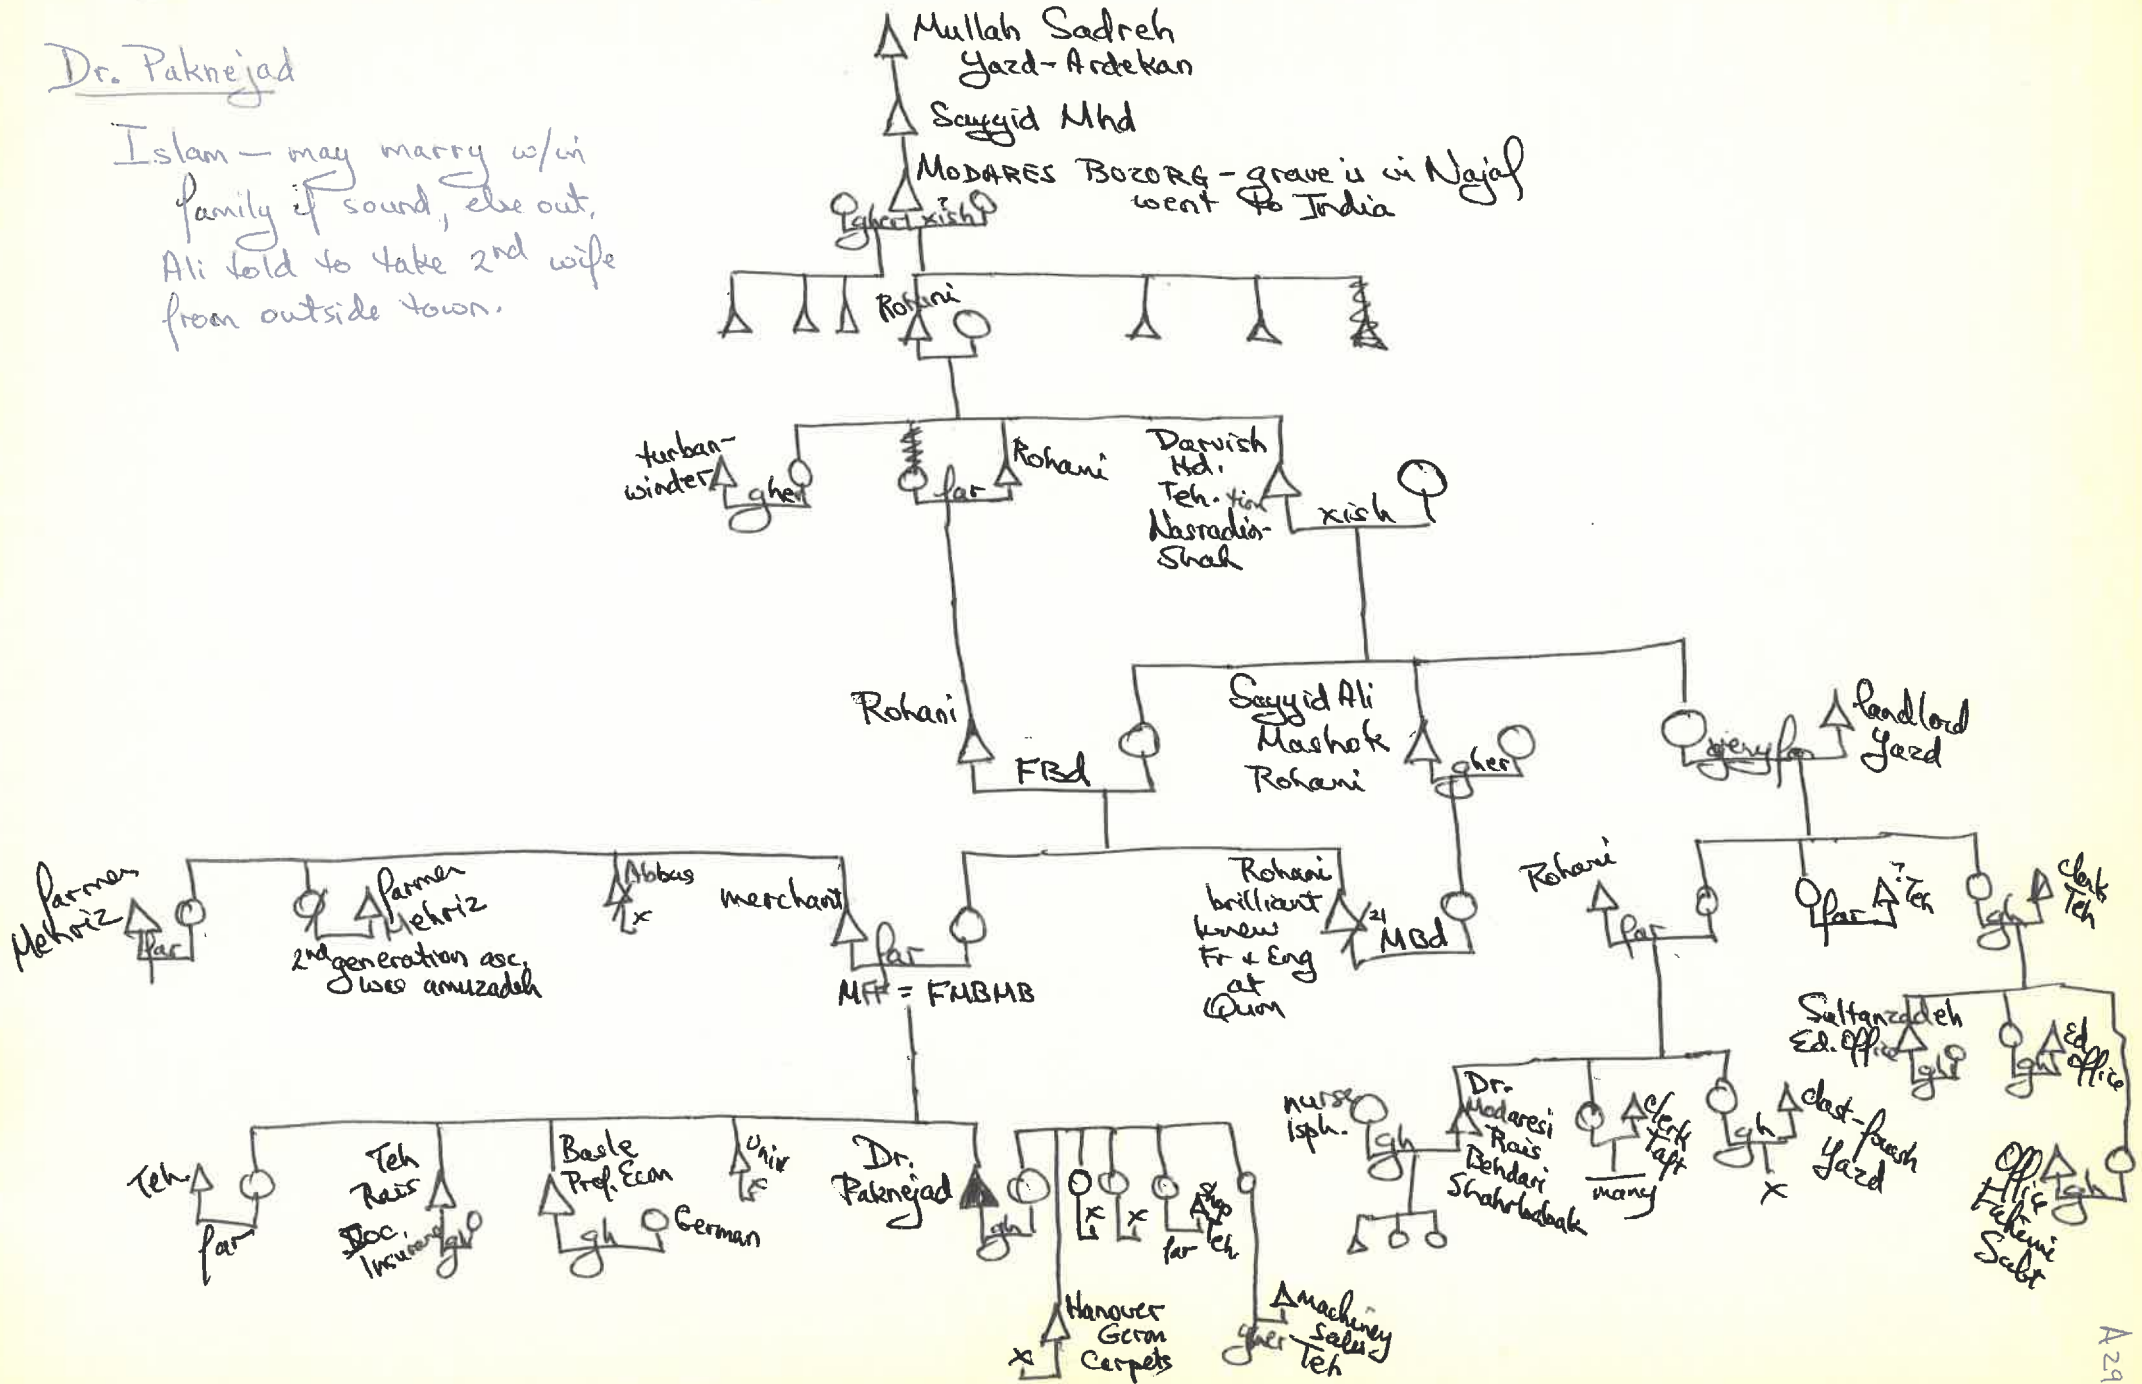 Dr. Paknejad
Islam – may marry w/in
family if sound, else out.
Ali told to take 2nd wife
from outside town.
Mullah Sadreh
Yazd-Ardekan
Sayyid Mhd
MODARES BOZORG – grave is in Najaf
went to India
gher
?
xish
Rohani
turban-
winder
gher
far
Rohani
Darvish
Md.
Teh.
Nasradin-
Shah
xish
Rohani
FBd
Sayyid Ali
Mashok
Rohani
gher
very far
landlord
Yazd
farmer
Mehriz
far
farmer
Mehriz
2nd generation asc.
was amuzadeh
Abbas
x
merchant
far
MFF = FMBMB
Rohani
brilliant
knew
Fr + Eng
at
Qum
21
MBd
Rohani
far
far
? Teh
gh
Clerk
Teh
Sultanzadeh
Ed. Office
gh
gh
Ed
Office
Office
Sabt
gh
Teh
far
Teh
Rais
Soc.
Insurance
gh
Basle
Prof. Econ
gh
German
Univ
x
Dr.
Paknejad
gh
x
x
far
Shop
Teh.
Hanover
Germ
Carpets
x
gher
Machinery
Sales
Teh
nurse
Isph.
gh
Dr.
Modaresi
Rais
Behdari
Shahrbabak
Clerk
Taft
many
gh
x
Yazd
A29